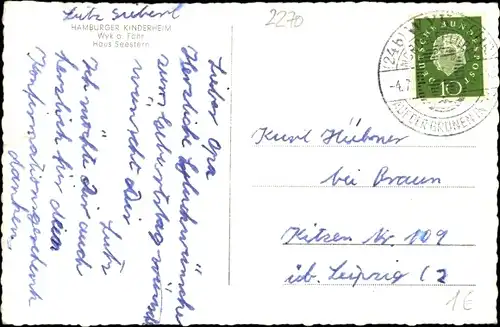 Lutz Siebert
HAMBURGER KINDERHEIM
Wyk a. Föhr
Haus Seestern
2270
Lieber Opa
Herzliche Glückwünsche
zum Geburtstag
wünscht Dir
Lutz
Ich möchte Dir auch
herzlich für dein
Konfirmationsgeschenk
danken.
DEUTSCHE BUNDESPOST
10
(24b) WYK
-4.7.
AUF DER GRÜNEN
Kurt Hübner
bei Braun
Kitzen Nr 109
üb. Leipzig C2
1€